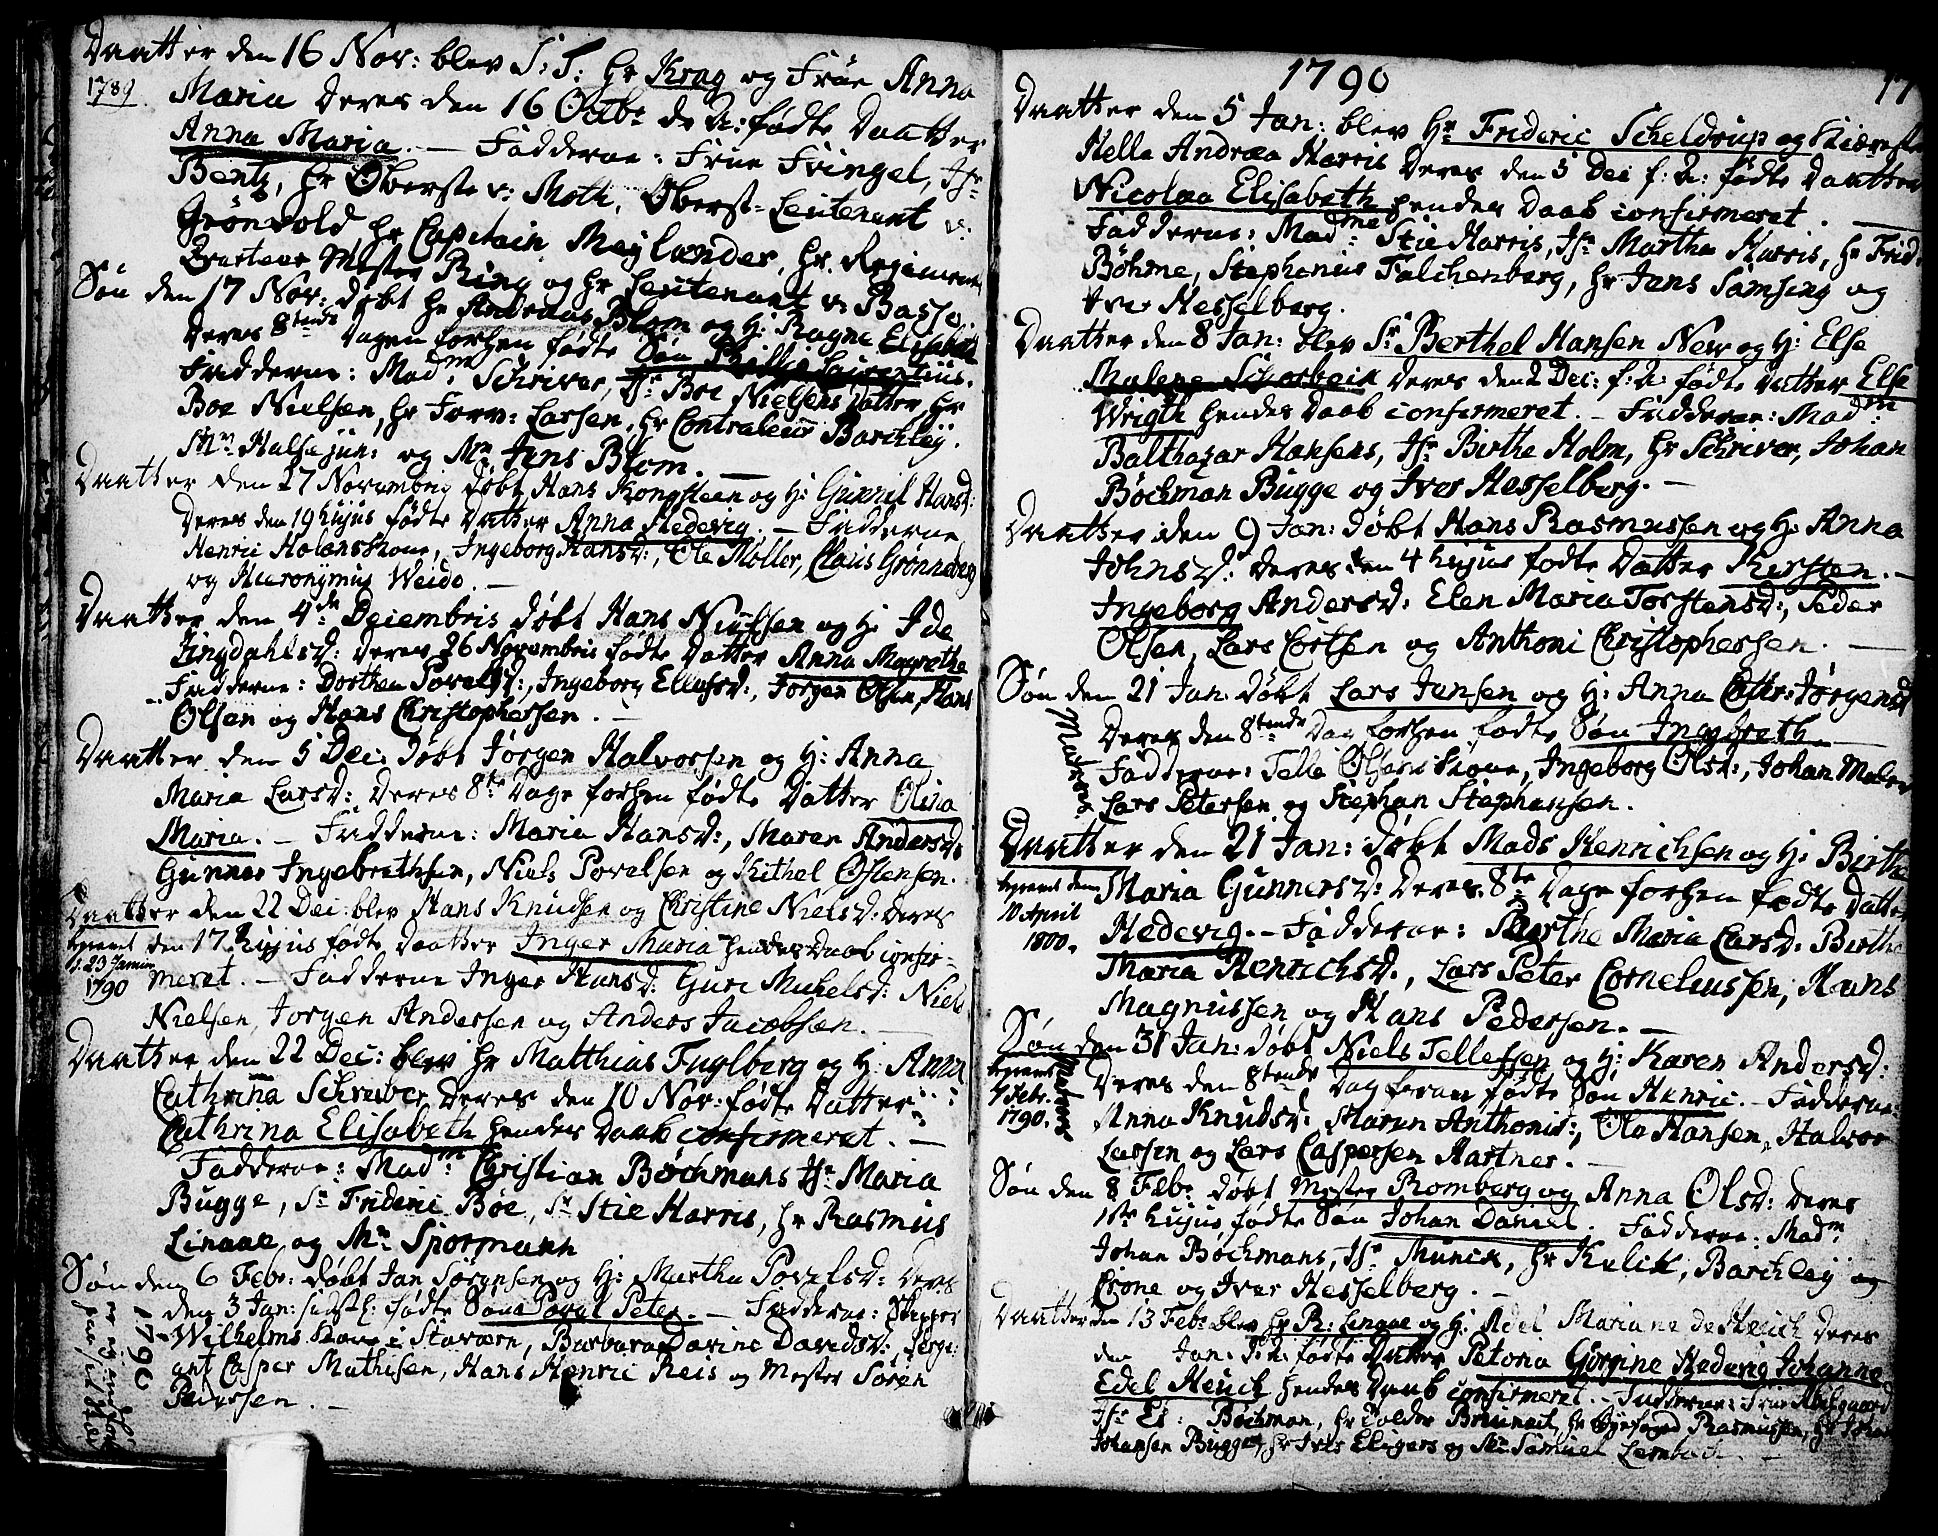 Daatter den 16 Nov: blev S: T: Hr Krag og Frue Anna
1789
Maria deres den 16 Octbr d: A: fødte Daatter
Anna Maria. — Fadderne: Frue Fvingel, Jfr
Bentz, Hr Oberste v: Moth, Oberst-Leutenant v:
Grönvold Hr Capitain Meylænder, Hr. Regiments
Qvarteer Mester Ring og Hr Leutenant v: Basso
Søn den 17 Nov: døbt Hr Andreas Blom og H: Ragna Elisabeth
deres 8tende Dagen forhen fødte Søn Phillip Laurentius.
Fadderne: Madm Schriver, Jfr Boe Nielsens Datter, Hr
Boe Nielsen, Hr Forv: Larsen, Hr Contraleur Barchley.
Mr Halse jun: og Mr Jens Blom. —
Daatter den 27 Novembris døbt Hans Kongsteen og H: Gunnil Hansd:
deres den 19 hujus fødte Datter Anna Hedevig. — Fadderne
Henric Holans Kone, Ingeborg Hansd:, Ole Møller, Claus Grønneberg
og Hieronymus Weido. —
Daatter den 4de Decembris døbt Hans Nielsen og H: Ide
Lingdahlsd: deres 26 Novembris fødte Datter Anna Magrethe
Fadderne: Dorthea Povelsd:, Ingeborg Ellefsd:, Jørgen Olsen, Hans
Olsen og Hans Christophersen. —
Daatter den 5 Dec: døbt Jørgen Halvorsen og H: Anna
Maria Larsd: deres 8te Dage forhen fødte Datter Olina
Maria. — Fadderne: Maria Hansd:, Maren Andersd:
Gunner Ingebrethsen, Niels Povelsen og Kithel Ostensen.
Daatter den 22 Dec: blev Hans Knudsen og Christine Nielsd: deres
begravet den 17 hujus fødte Daatter Inger Maria hendes Daab confir-
d. 23 Januar
1790 meret. — Fadderne Inger Hansd: Guri Mickelsd: Niels
Nielsen, Jørgen Andersen og Anders Jacobsen. —
Daatter den 22 Dec: blev Hr Matthias Fuglberg og H: Anna
Cathrina Schreuber deres den 10 Nov: fødte Datter
Cathrina Elisabeth hendes Daab confirmeret. —
Fadderne: Madm Christian Bøchmans Jfr Maria
Bugge, Sr Frideric Bøe, Sr Stie Harris, Hr Rasmus
Linaae og Mr Spormann
Søn den 6 Febr: døbt Jan Sørensen og H: Martha Povelsd: deres
den 3 Jan: sidstl: fødte Søn Povel Peter. — Fadderne: Skipper
Wilhelms Kone i Staværn, Barbara Davine Davidsd: Serge-
ant Casper Mathisen, Hans Henric Reis og Mester Søren
Petersen. —
1790
1790
17
Daatter den 5 Jan: blev Hr Frideric Scheldrup og Kiæreste
Helle Andræa Harris deres den 5 Dec f: A: fødte Daatter
Nicolæa Elisabeth hendes Daab confirmeret. —
Fadderne: Madme Stie Harris, Jfr Martha Harris, Hr Frid:
Böhme, Stephanius Falchenberg, Hr Jens Samsing og
Iver Hesselberg.
Daatter den 8 Jan: blev Sr Berthel Hansen New og H: Else
Malene Skarbeck deres den 2 Dec: f: A: fødte Datter Else
Wrigth hendes Daab confirmeret. — Fadderne: Madm
Balthazar Hansens, Jfr Birthe Holm, Hr Schriver, Johan
Bøchman Bugge og Iver Hesselberg. —
Daatter den 9 Jan: døbt Hans Rasmussen og H: Anna
Johnsd: deres den 4 hujus fødte Datter Kirsten. —
Ingeborg Andersd: Elen Maria Torstensd:, Peder
Olsen, Lars Cortsen og Anthoni Christophersen. —
Søn den 21 Jan: døbt Lars Jansen og H: Anna Cathr: Jørgensd
Deres den 8tende Dag forhen fødte Søn Ingebreth —
Matros
Fadderne: Telle Olsens Kone, Ingeborg Olsd:, Johan Maler
Lars Petersen og Stephan Stephansen.
Daatter den 21 Jan: døbt Mads Henrichsen og H: Birthe
begravet den Maria Gunnersd: deres 8te Dage forhen fødte Datter
10 April
1800. Hedevig. — Fadderne: Marthe Maria Larsd: Birthe
Maria Henrichsd:, Lars Peter Corneliussen, Hans
Magnussen og Hans Pedersen. —
Søn den 31 Jan: døbt Niels Tellefsen og H: Karen Andersd:
begravet Matros Deres den 8tende Dag foran fødte Søn Henric. — Fadderne:
7 Febr.
1790. Anna Knudsd: Maren Anthonisd:, Ole Hansen, Halvor
Larsen og Lars Caspersen Hartner. —
Søn den 8 Febr døbt Mester Romberg og Anna Olsd: deres
1ste hujus fødte Søn Johan Daniel. Fadderne: Madm
Johan Bøchmans, Jfr Munck, Hr Kulick, Barchley og
Crone og Iver Hesselberg. —
Daatter den 13 Febr blev Hr R: Linaae og H: Adel Mariane de Heuck deres
den Jan: d: A: fødte Datter Petona Gorgine Hedevig Johanne
Edel Heuck hendes Daab confirmeret. — Fadderne: Frue Abilgaard
Jfr El: Bøchman, Hr Tolder Breunech, Hr Rasmussen, Hr Johan
Johansen Bugge, Hr Iver Eligers og Mr Samuel Lembach. —